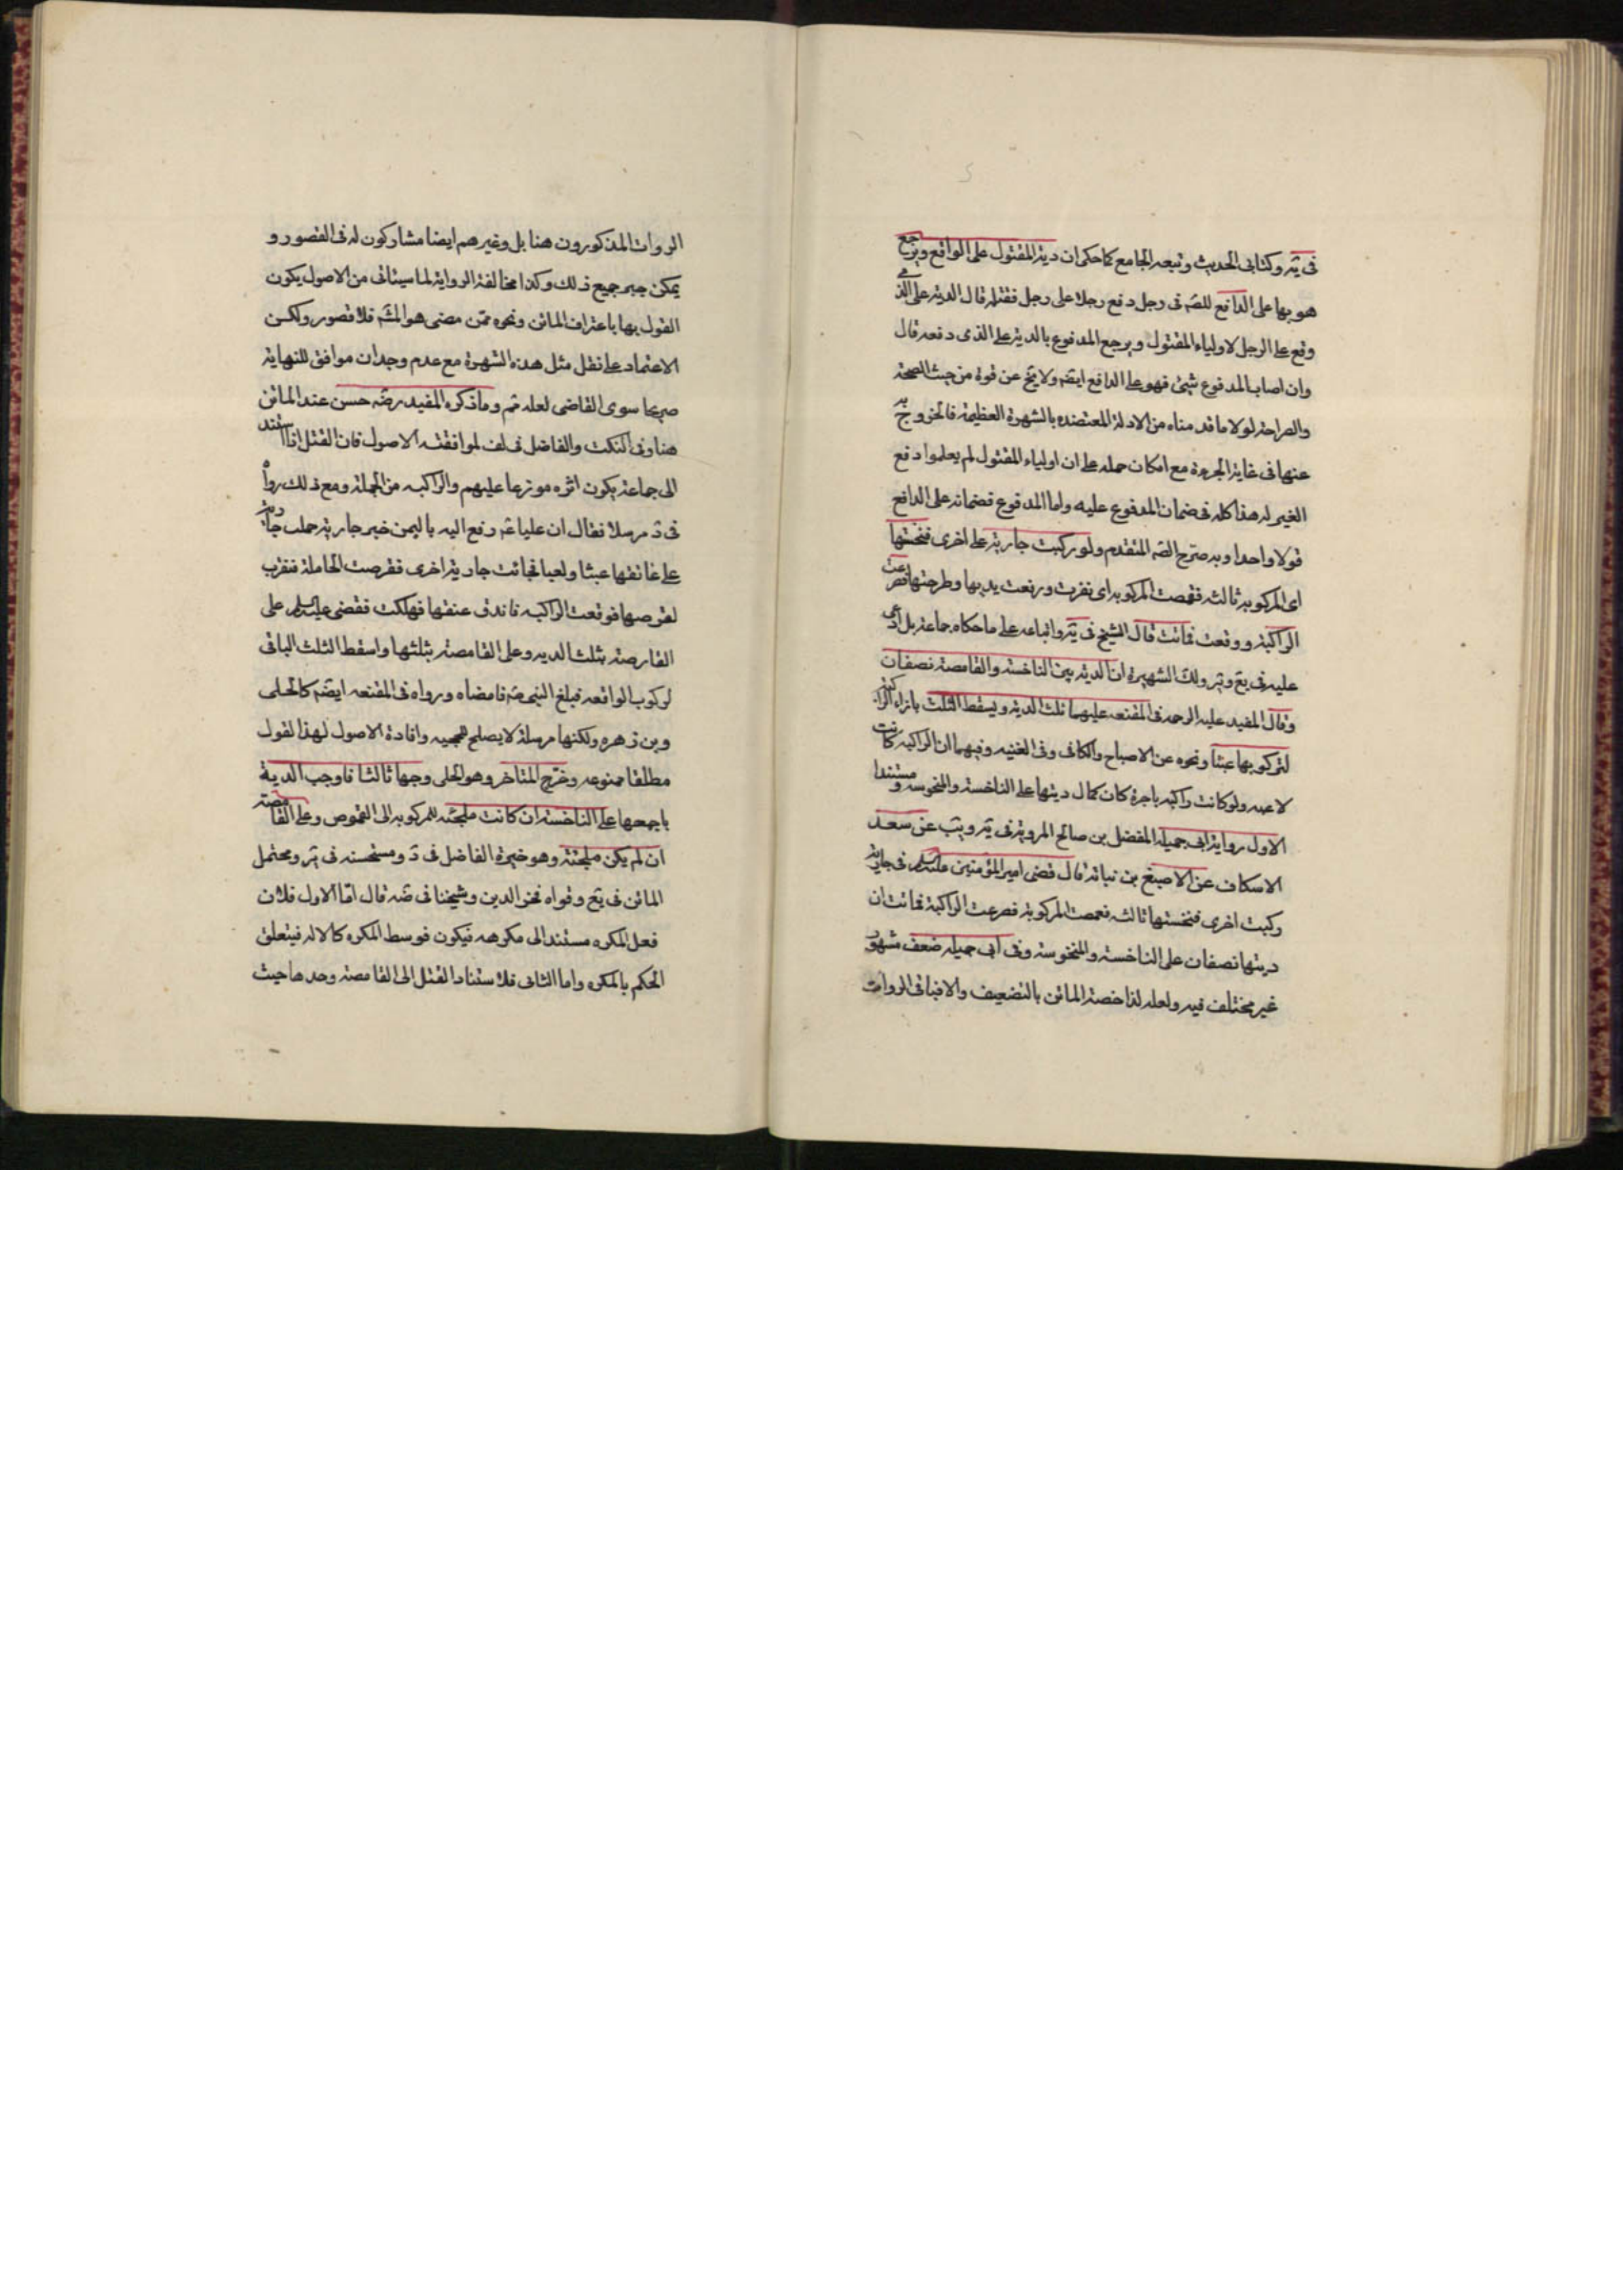 فى يه وكتابى الحديث وتبعه الجامع كما حكى ان دية المقتول على الواقع ويرجع
هو بها على الدافع للصه فى رجل دفع رجلا على رجل فقتله قال الدية على الذى
وقع على الرجل لاولياء المقتول ويرجع المدفوع بالدية على الذى دفعه قال
وان اصاب المدفوع شئ فهو على الدافع ايضه ولا يخ عن قوة من حيث الصحة
والصراحة لولا ما قدمناه من الادلة المعتضده بالشهرة العظيمة فالخروج بذ
عنها فى غاية الجرءة مع امكان حمله على ان اولياء المقتول لم يعلموا دفع
الغير له هذا كله فى ضمان المدفوع عليه واما المدفوع فضمانه على الدافع
قولا واحدا وبه صرح الصه المتقدم ولو ركبت جارية على اخرى فنخستها
اى المركوبه ثالثه فقمصت المركوبه اى نفرت ورفعت يديها وطرحتها فصرعت
الراكبة ووقعت فماتت قال الشيخ فى يه واتباعه على ما حكاه جماعة بل ادعى
عليه فى يع وير ولك الشهيرة ان الدية بين الناخسة والقامصة نصفان
وقال المفيد عليه الرحمه فى المقنعه عليهما ثلثا الدية ويسقط الثلث بازاء الراكبة
لتركوبها عبثا ونحوه عن الاصباح والكافى وفى الغنيه وفيهما ان الراكبه كانت
لاعبه ولو كانت راكبه باجرة كان كمال ديتها على الناخسة والمنخوسه ومستندا
الاول رواية ابى جميلة المفضل بن صالح المروية فى يه ويب عن سعد
الاسكاف عن الاصبغ بن نباتة قال قضى امير المؤمنين عليه السلم فى جارية
ركبت اخرى فنخستها ثالثه فقمصت المركوبة فصرعت الراكبة فماتت ان
ديتها نصفان على الناخسة والمنخوسة وفى ابى جميله ضعف مشهور
غير مختلف فيه ولعله لذا خصه الماتن بالتضعيف والا فباقى الروات
الروات المذكورون هنا بل وغيرهم ايضا مشاركون له فى القصور و
يمكن جبر جميع ذلك وكذا مخالفة الرواية لما سيئاتى من الاصول يكون
القول بها باعتراف الماتن ونحوه ممن مضى هو المشه فلا قصور ولكن
الاعتماد على نقل مثل هذه الشهرة مع عدم وجدان موافق للنهاية
صريحا سوى القاضى لعله ثم وما ذكره المفيد رضه حسن عند الماتن
هنا وفى النكت والفاضل فى لف لموافقته الاصول فان القتل اذا استند
الى جماعة يكون اثره موزعا عليهم والراكبه من الجملة ومع ذلك رواه
فى د مرسلا فقال ان عليا عه رفع اليه باليمن خبر جارية حملت جارية
على عاتقها عبثا ولعبا فجائت جارية اخرى فقرصت الحاملة فنقزت
لقرصها فوقعت الراكبه فاندق عنقها فهلكت فقضى عليه السلم على
القارصة بثلث الديه وعلى القامصة بثلثها واسقط الثلث الباقى
لركوب الواقعه فبلغ النبى صه فامضاه ورواه فى المقنعه ايضه كالحلى
وبن زهره ولكنها مرسلة لا يصلح للحجيه وافادة الاصول لهذا لقول
مطلقا ممنوعه وخرج المتاخر وهو الحلى وجها ثالثا فاوجب الدية
باجمعها على الناخسة ان كانت ملجئه للمركوبه الى القموص وعلى القامصة
ان لم يكن ملجئة وهو خيرة الفاضل فى د ومستحسنه فى ير ومحتمل
الماتن فى يع وقواه فخر الدين وشيخنا فى ضه قال اما الاول فلان
فعل المكره مستند الى مكرهه فيكون توسط المكره كالاله فيتعلق
الحكم بالمكره واما الثانى فلا ستناد القتل الى القامصة وحدها حيث